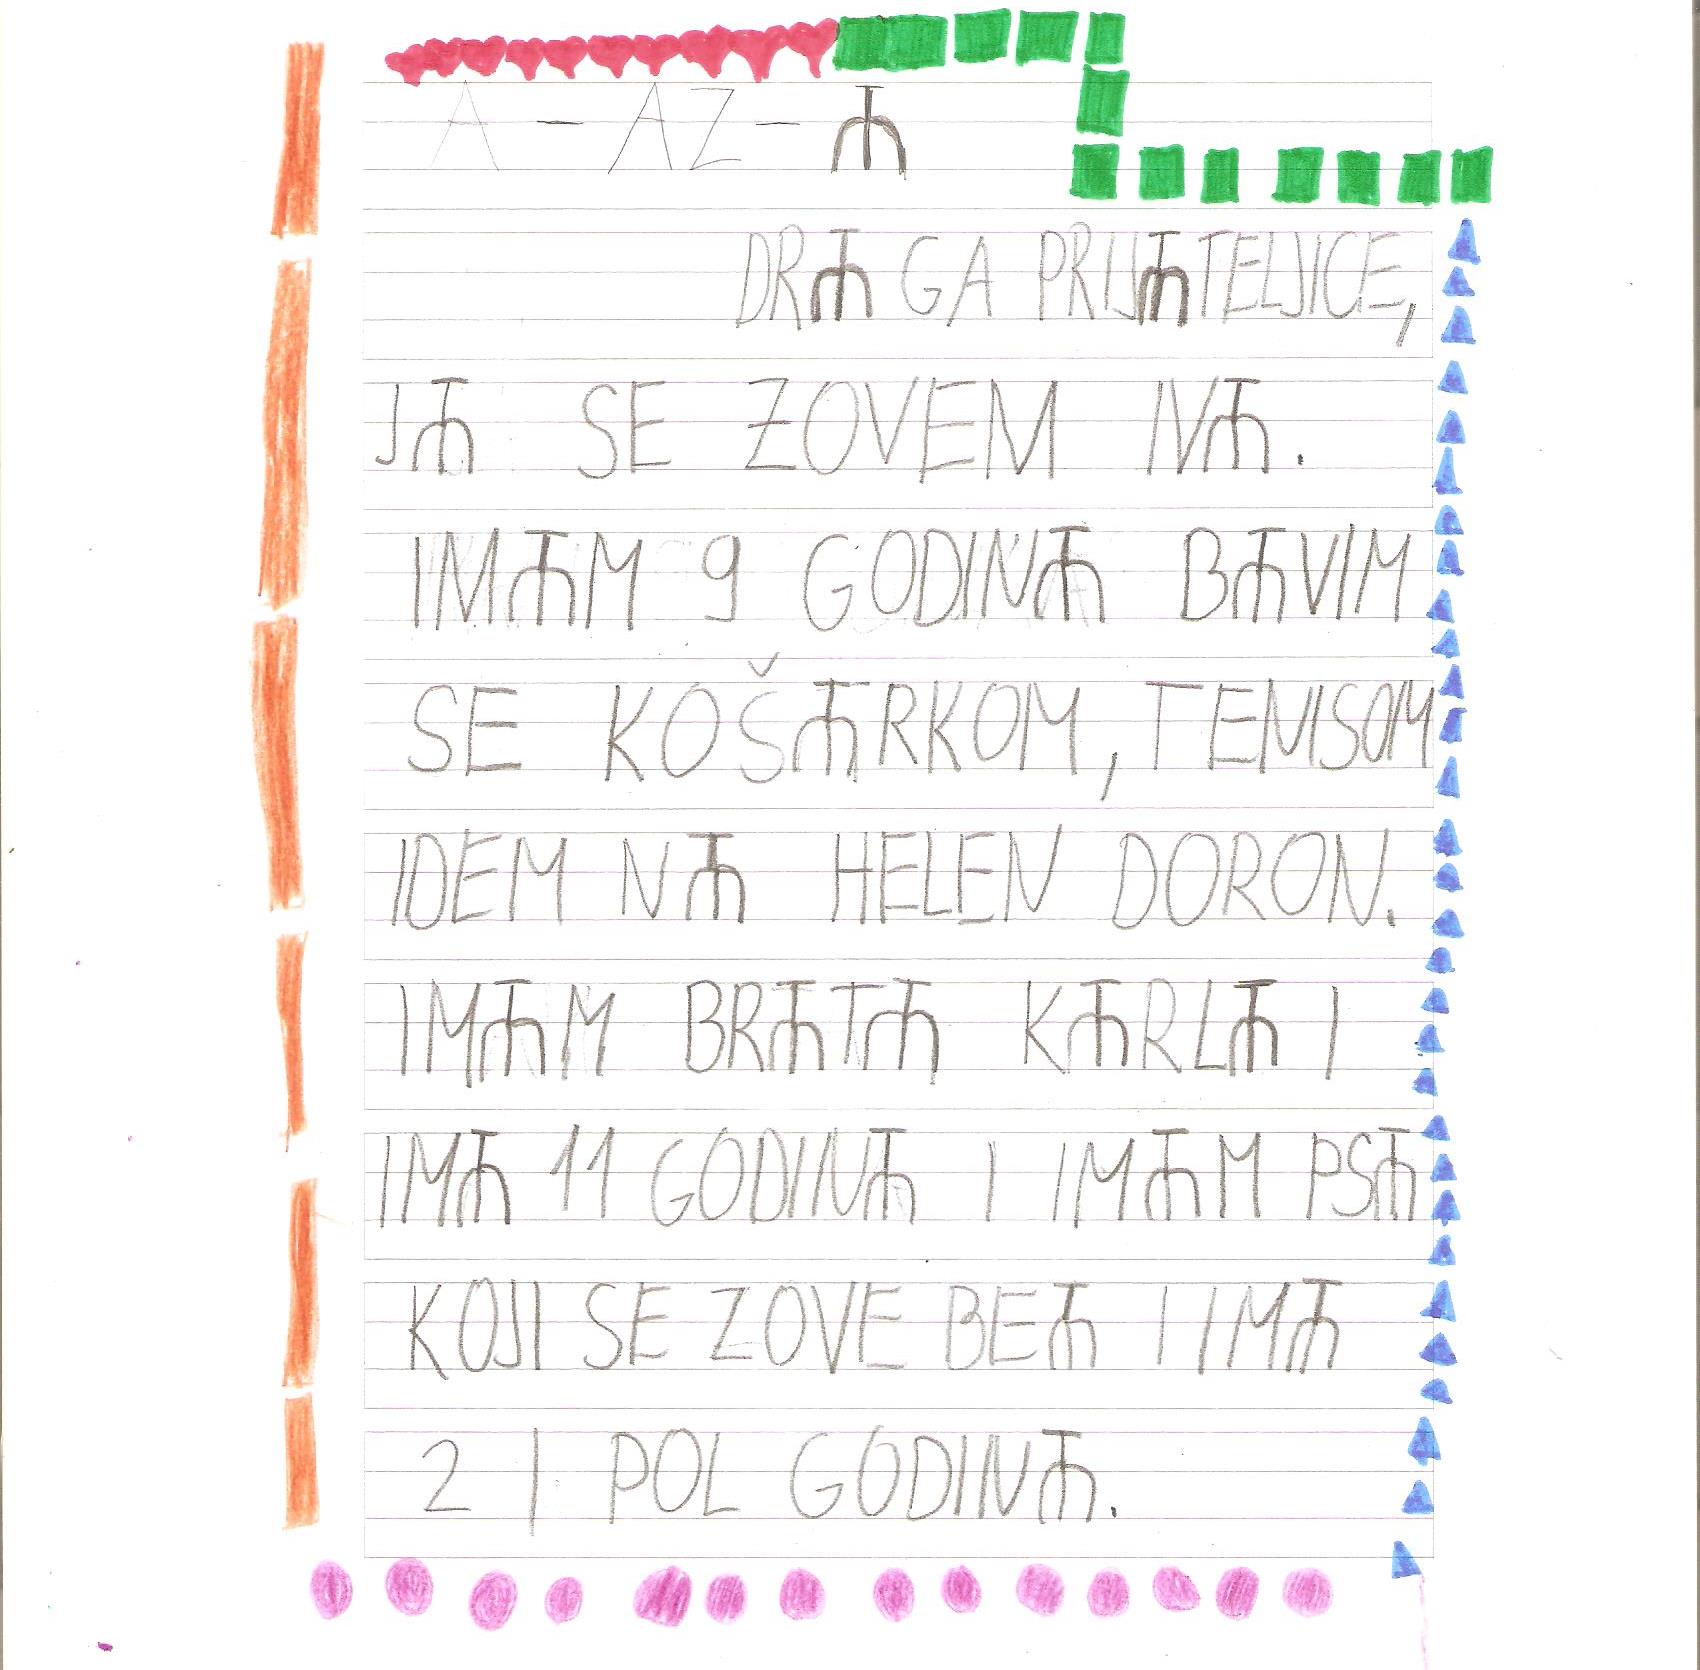 A - AZ - Ⰰ
DRⰀGA PRIJⰀTELJICE,
JⰀ SE ZOVEM IVⰀ.
IMⰀM 9 GODINⰀ BⰀVIM
SE KOŠⰀRKOM, TENISOM
IDEM NⰀ HELEN DORON.
IMⰀM BRⰀTⰀ KⰀRLⰀ I
IMⰀ 11 GODINⰀ I IMⰀM PSⰀ
KOJI SE ZOVE BEⰀ I IMⰀ
2 I POL GODINⰀ.